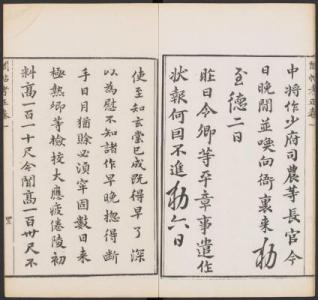 中將作少府司農等長官今
日晚間並喚向衙裏來勑
至德二日
昨日令卿等平章事遣作
狀報何因不進勑六日
使至知玄堂已成既得早了深
以為慰不知諸作早晚揔得斷
手日月猶賒必須牢固數日來
極熱卿等檢校大應疲倦陵初
料高一百一十尺今聞高一百卅尺不